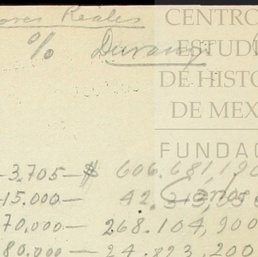 ores Reales
% Durango
CENTRO
ESTUDI
DE HISTO
DE MEX
FUNDAC
-3.705- $ 606.681,190
15.000- 42.
70,000- 268.104,900
80.000- 24.823,200